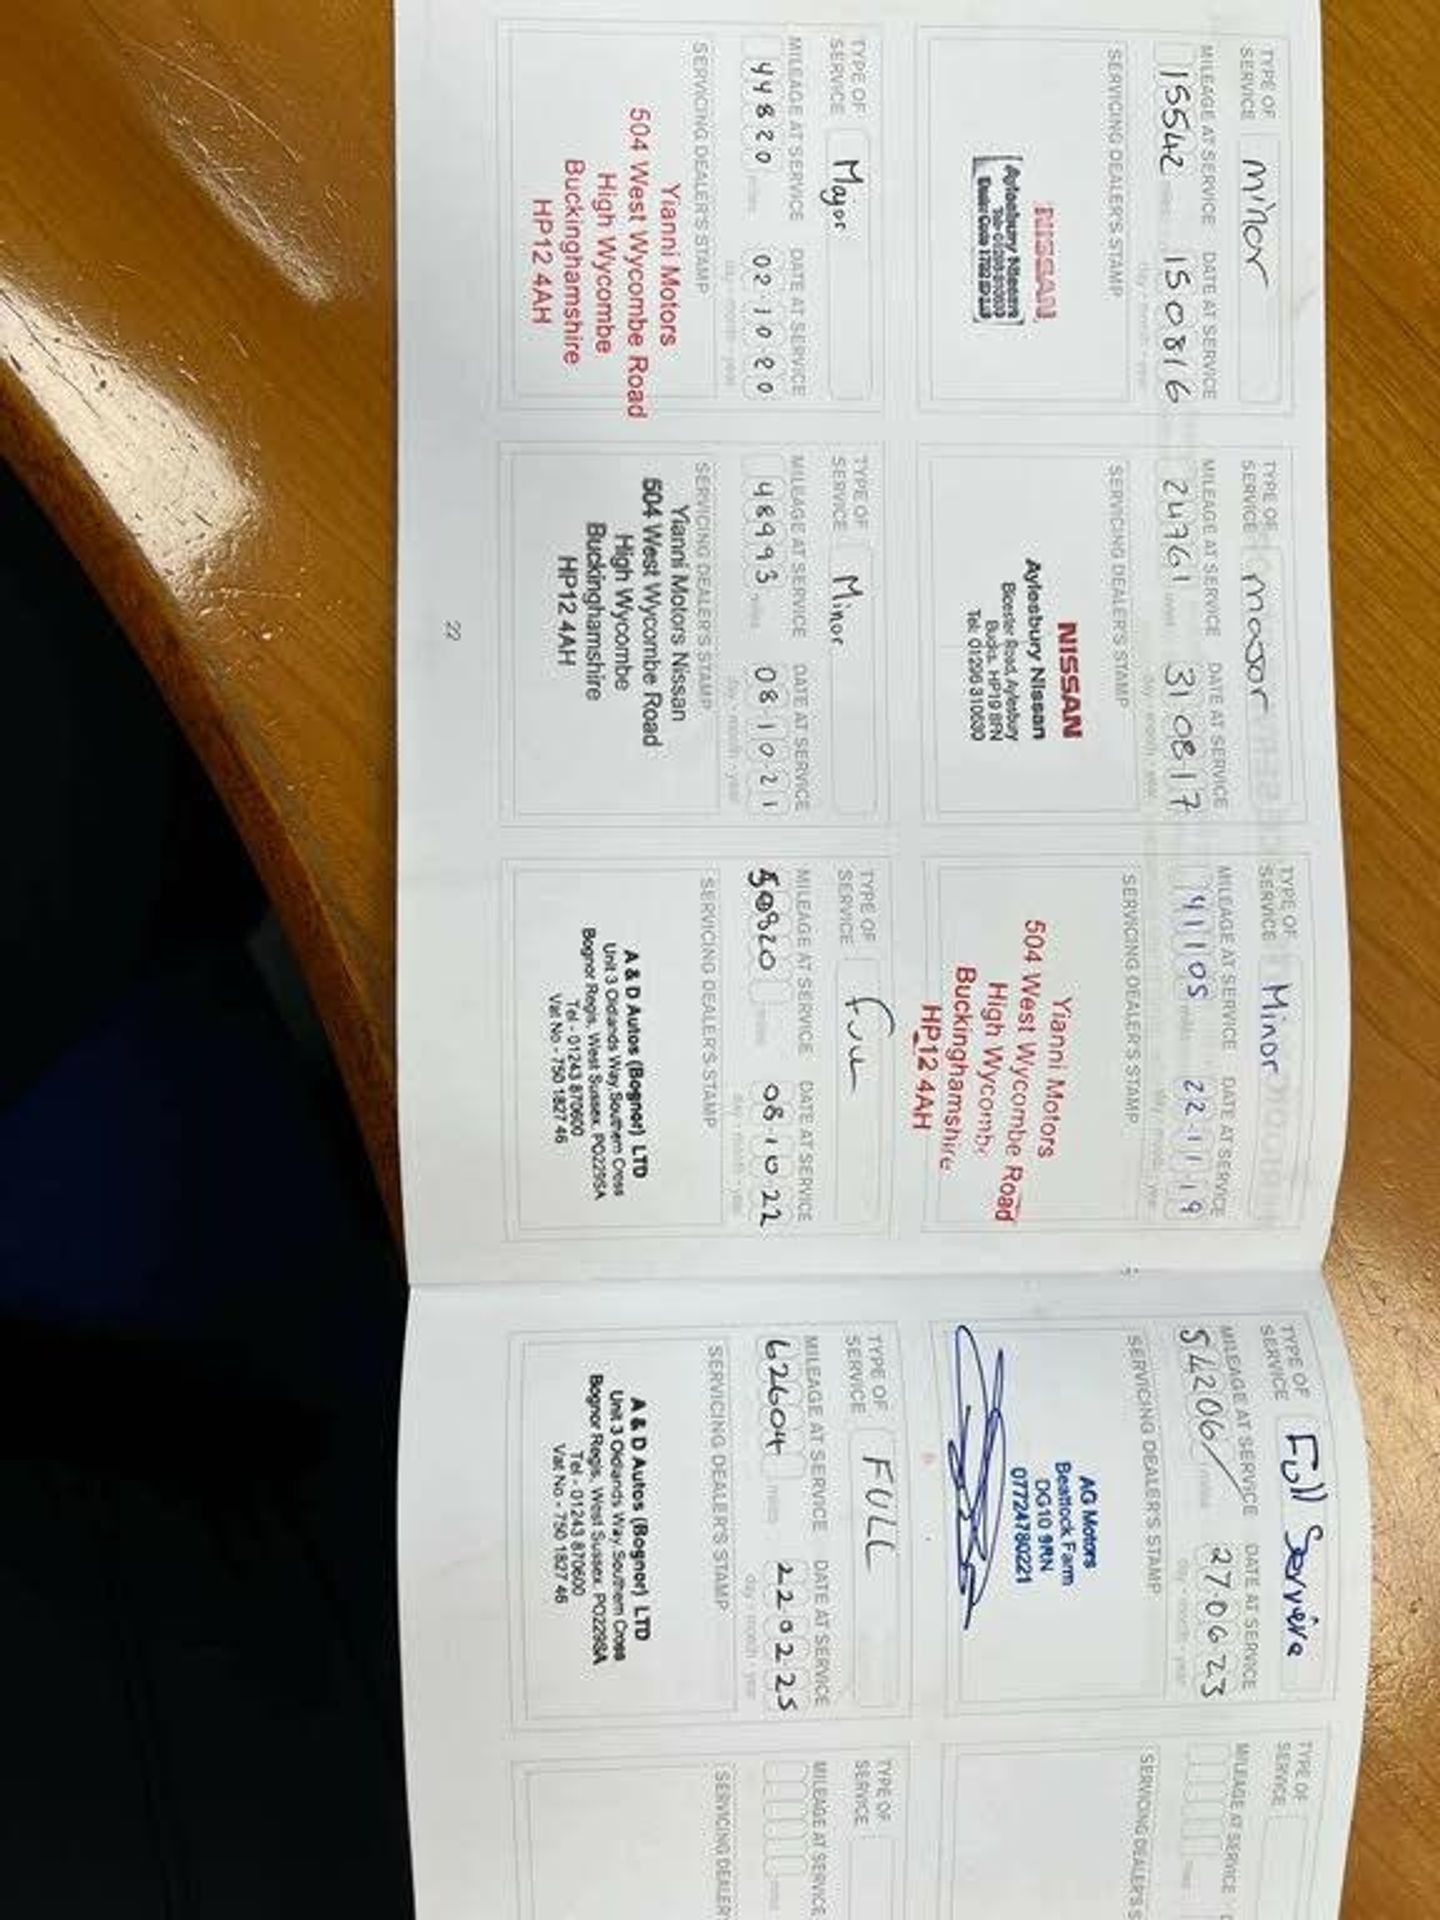 TYPE OF SERVICE Minor
MILEAGE AT SERVICE DATE AT SERVICE
15542 miles 15 08 16
day - month - year
SERVICING DEALER'S STAMP
NISSAN
Aylesbury Nissan
TYPE OF SERVICE Major
MILEAGE AT SERVICE DATE AT SERVICE
44820 miles 02 10 20
day - month - year
SERVICING DEALER'S STAMP
Yianni Motors
504 West Wycombe Road
High Wycombe
Buckinghamshire
HP12 4AH
TYPE OF SERVICE Major
MILEAGE AT SERVICE DATE AT SERVICE
24761 miles 31 08 17
day - month - year
SERVICING DEALER'S STAMP
NISSAN
Aylesbury Nissan
Bicester Road, Aylesbury
Bucks. HP19 8FN
Tel: 01296 310600
TYPE OF SERVICE Minor
MILEAGE AT SERVICE DATE AT SERVICE
48993 miles 08 10 21
day - month - year
SERVICING DEALER'S STAMP
Yianni Motors Nissan
504 West Wycombe Road
High Wycombe
Buckinghamshire
HP12 4AH
22
TYPE OF SERVICE Minor
MILEAGE AT SERVICE DATE AT SERVICE
41105 miles 22 11 19
day - month - year
SERVICING DEALER'S STAMP
Yianni Motors
504 West Wycombe Road
High Wycombe
Buckinghamshire
HP12 4AH
TYPE OF SERVICE Full
MILEAGE AT SERVICE DATE AT SERVICE
miles 08 10 22
day - month - year
SERVICING DEALER'S STAMP
A & D Autos (Bognor) LTD
Unit 3 Oldlands Way, Southern Cross
Bognor Regis, West Sussex. PO229SA
Tel - 01243 870600
Vat No - 750 1827 46
TYPE OF SERVICE Full Service
MILEAGE AT SERVICE DATE AT SERVICE
54206/ miles 27 06 23
day - month - year
SERVICING DEALER'S STAMP
AG Motors
Beattock Farm
DG10 9RN
07724780221
TYPE OF SERVICE FULL
MILEAGE AT SERVICE DATE AT SERVICE
62604 miles 22 02 25
day - month - year
SERVICING DEALER'S STAMP
A & D Autos (Bognor) LTD
Unit 3 Oldlands Way, Southern Cross
Bognor Regis, West Sussex. PO229SA
Tel - 01243 870600
Vat No - 750 1827 46
TYPE OF SERVICE
MILEAGE AT SERVICE D
miles
SERVICING DEALER'S S
TYPE OF SERVICE
MILEAGE AT SERVICE
miles
SERVICING DEALER'